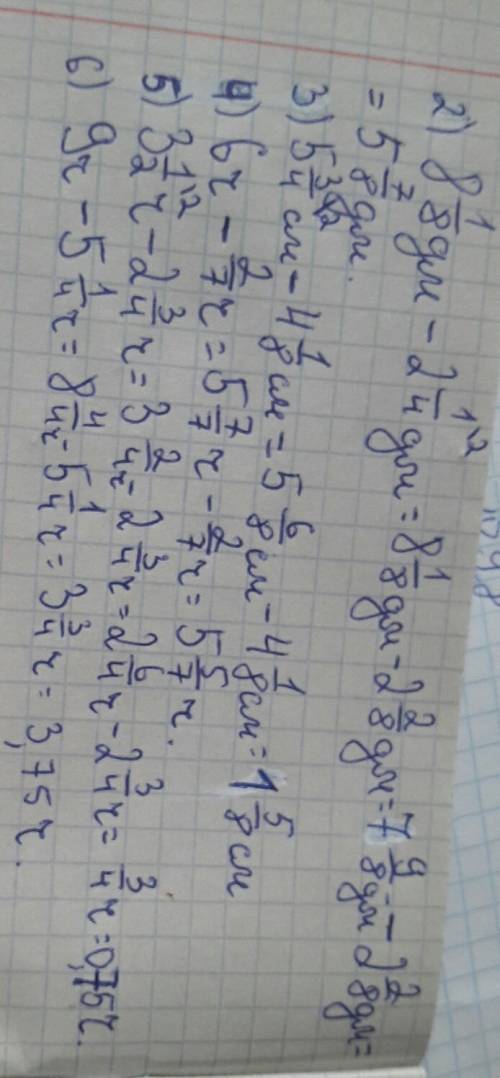 2) 8 1/8 дм - 2 1/4 ^2 дм = 8 1/8 дм - 2 2/8 дм = 7 9/8 дм - 2 2/8 дм =
= 5 7/8 дм.
3) 5 3/4 ^2 см - 4 1/8 см = 5 6/8 см - 4 1/8 см = 1 5/8 см
4) 6 ч - 2/7 ч = 5 7/7 ч - 2/7 ч = 5 5/7 ч.
5) 3 1/2 ^2 ч - 2 3/4 ч = 3 2/4 ч - 2 3/4 ч = 2 6/4 ч - 2 3/4 ч = 3/4 ч = 0,75 ч.
6) 9 ч - 5 1/4 ч = 8 4/4 ч - 5 1/4 ч = 3 3/4 ч = 3,75 ч.